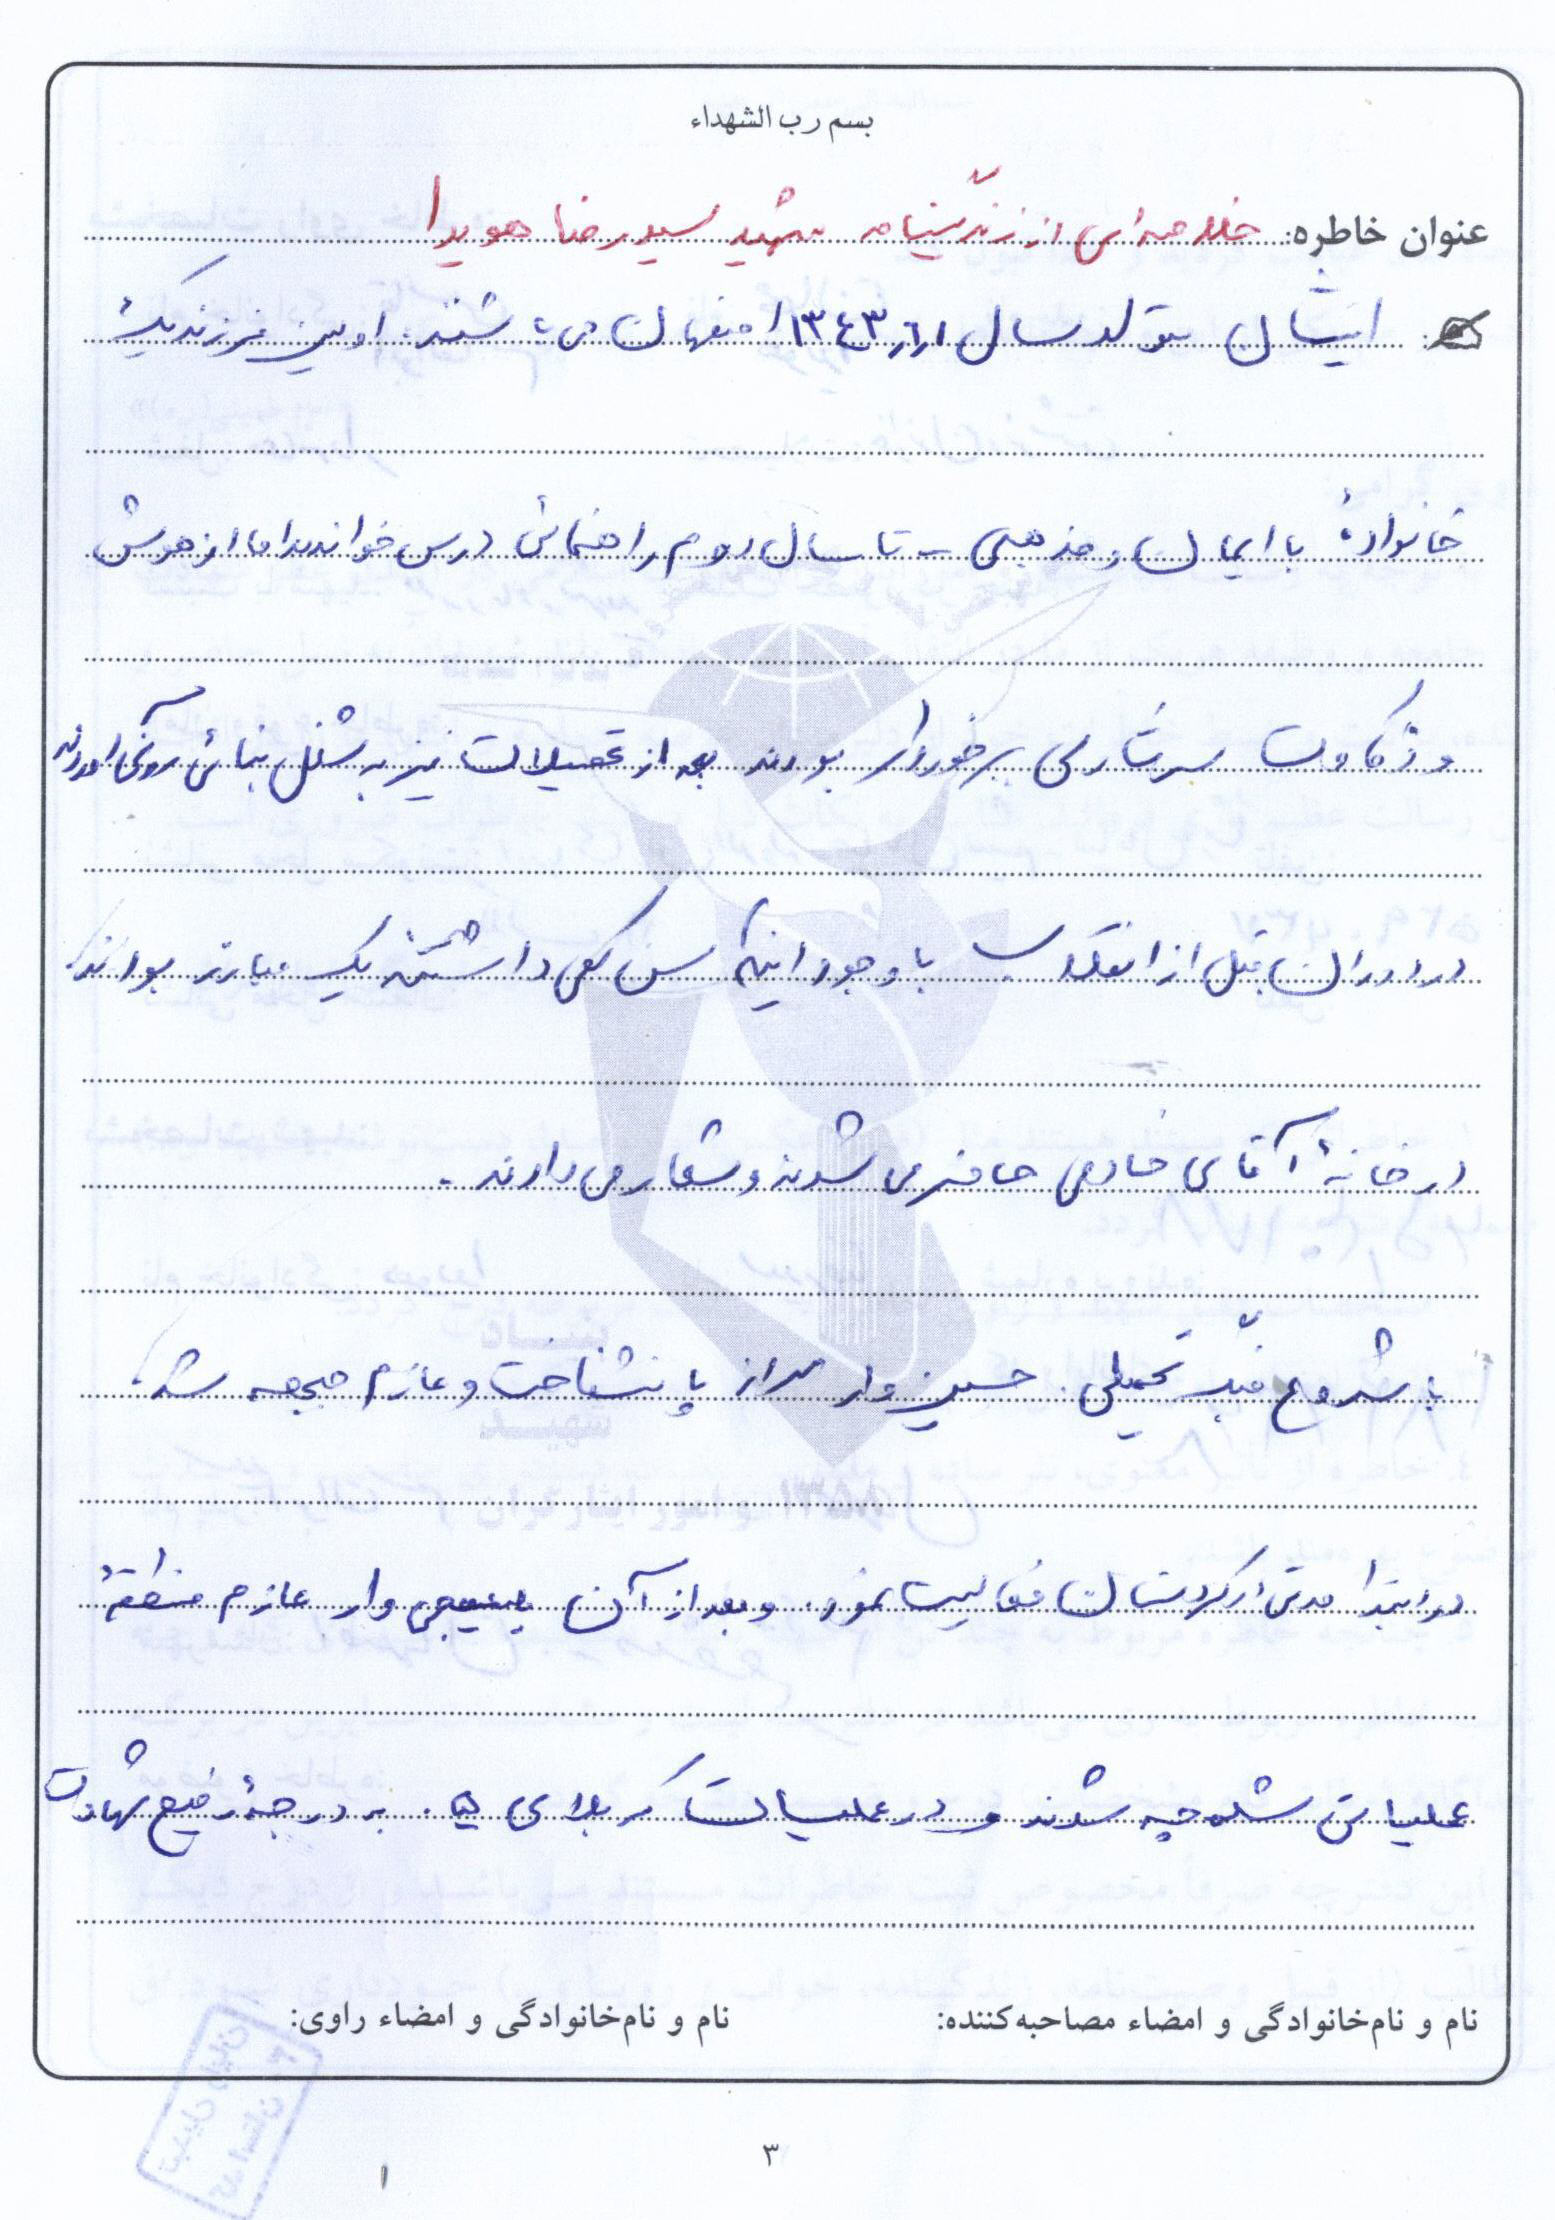 بسم رب الشهداء
عنوان خاطره: خلاصه‌ای از زندگینامه شهید سید رضا هویدا
ایشان متولد سال ۱۳۴۳ اصفهان می باشند. اولین فرزند یک
خانوادهٔ با ایمان و مذهبی - تا سال دوم راهنمائی درس خواندند اما از هوش
و ذکاوت سرشاری برخوردار بودند بعد از تحصیلات نیز به شغل بنائی روی آوردند
در دوران قبل از انقلاب با وجود اینکه سن کمی داشتند یک مبارز بودند.
در خانهٔ آقای خادمی حاضر می شدند و شعار می دادند.
با شروع جنگ تحمیلی. حسین وار سر از پا نشناخت و عازم جبهه شد.
در ابتدا مدتی در کردستان فعالیت نمود. و بعد از آن بسیجی وار عازم منطقهٔ
عملیاتی شلمچه شدند و در عملیات کربلای ۵. به درجهٔ رفیع شهادت
نام و نام‌خانوادگی و امضاء مصاحبه‌کننده: نام و نام‌خانوادگی و امضاء راوی:
۳
۱